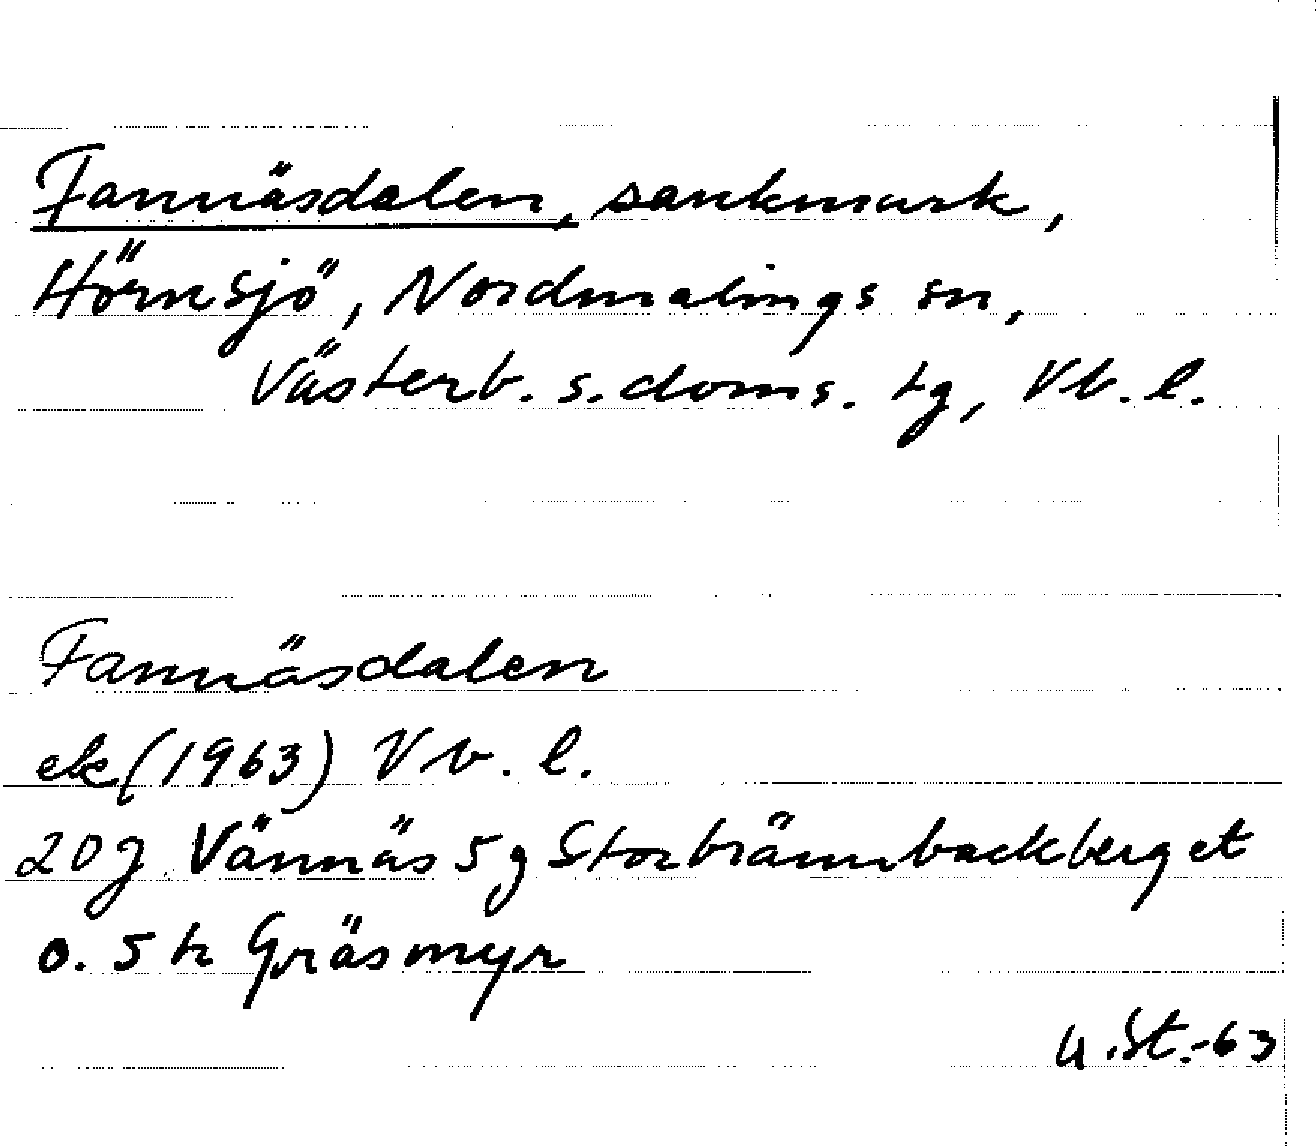 Fannäsdalen, sankmark,
Hörnsjö, Nordmalings sn,
Västerb. s. doms. tg, Vb. l.
Fannäsdalen
ek (1963) Vb. l.
20J Vännäs 5g Storbrännbackberget
o. 5h Gräsmyr
U.St.-63